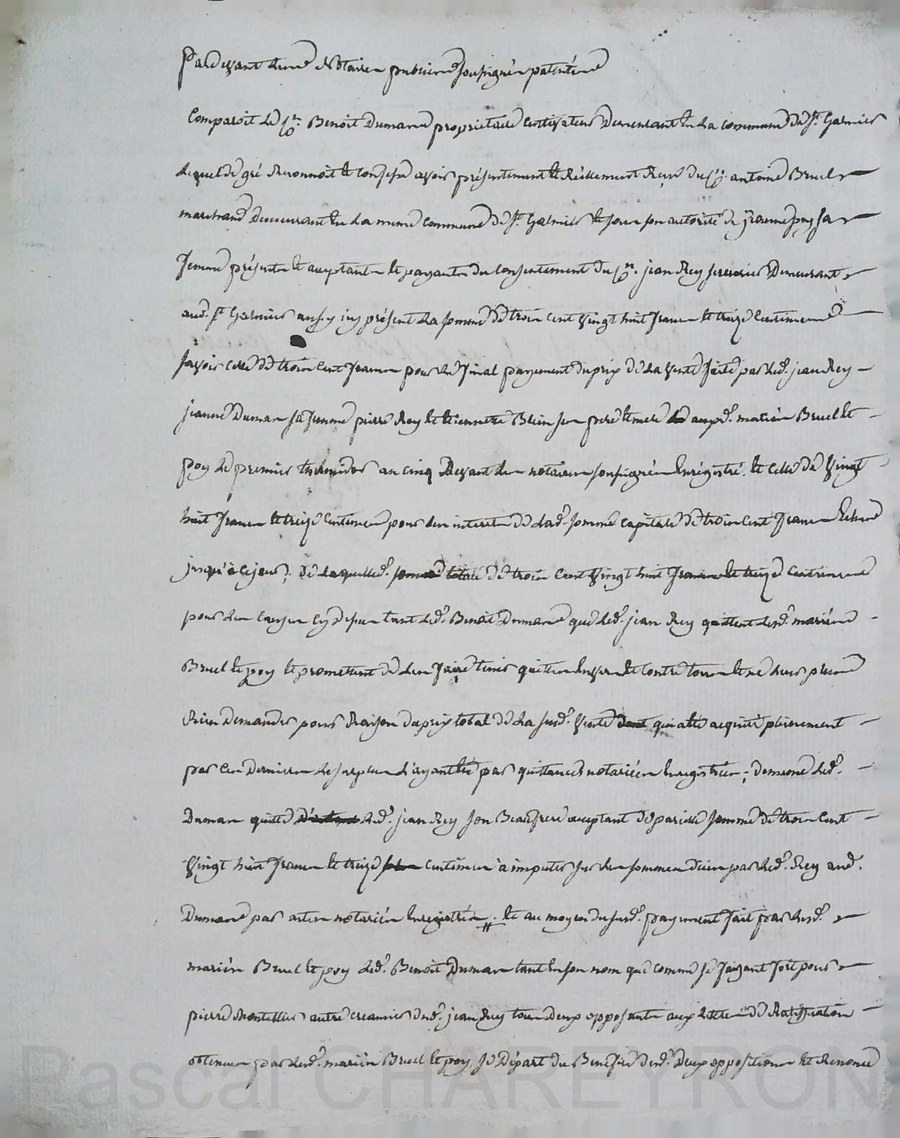 Pardevant Les Notaires publics soussignés patentés
Comparoit le Cen. Benoit Dumas propriétaire Cultivateur Demeurant En La commune de St. Galmier
Lequel de gré Reconnoit Et Confesse avoir présentement Et Réellement Reçu du Cn. antoine Bruel
marchand Demeurant En La meme Commune de St. Galmier Et sous son autorité de jeanne poy sa
femme présents Et acceptants Et payants du Consentement du Cen. jean Rey Demeurant
aud. St Galmier aussy icy présent La somme de trois Cent vingt huit francs Et treize Centimes
savoir celle de trois Cent francs pour Le final payement du prix de La vente faite par Led. jean Rey
jeanne Dumas sa femme pierre Rey Et Etiennette Blein ses pere Et mere auxd. mariés Bruel Et
poy Le premier thermidor an cinq Devant Les notaires soussignés Enrégistré. Et Celle de vingt
huit francs Et treize Centimes pour Les interets de Lad. somme capitale de trois Cent francs
jusqu'à ce jour; De Laquelle d. somme totale de trois Cent vingt huit francs Et treize Centimes
pour Les Causes Cy dessus tant Led. Benoit Dumas que Led. jean Rey quittent Lesd. mariés
Bruel Et poy Et promettent de Les faire tenir quittes Envers Et Contre tous Et ne Leur plus
Rien demander pour Raison du prix total de La susd. vente qui a été acquitté pleinement
par Ces Derniers Le surplus L'ayant été par quittances notariées Enregistrées; Demême Led.
Dumas quitte Led. jean Rey son Beaufrere acceptant de pareille somme de trois Cent
vingt huit francs Et treize centimes à imputer sur Les sommes Dues par Led. Rey aud.
Dumas par actes notariés Enregistrés; Et au moyen du susd. payement fait par Lesd.
mariés Bruel Et poy Led. Benoit Dumas tant En son nom que comme se faisant fort pour
pierre Montellier autre creancier dud. jean Rey tous Deux opposants aux Lettres de Ratification
obtenues par Lesd. mariés Bruel Et poy, se Départ du Benefice desd. Deux oppositions Et Renonce
Pascal CHAREYRON